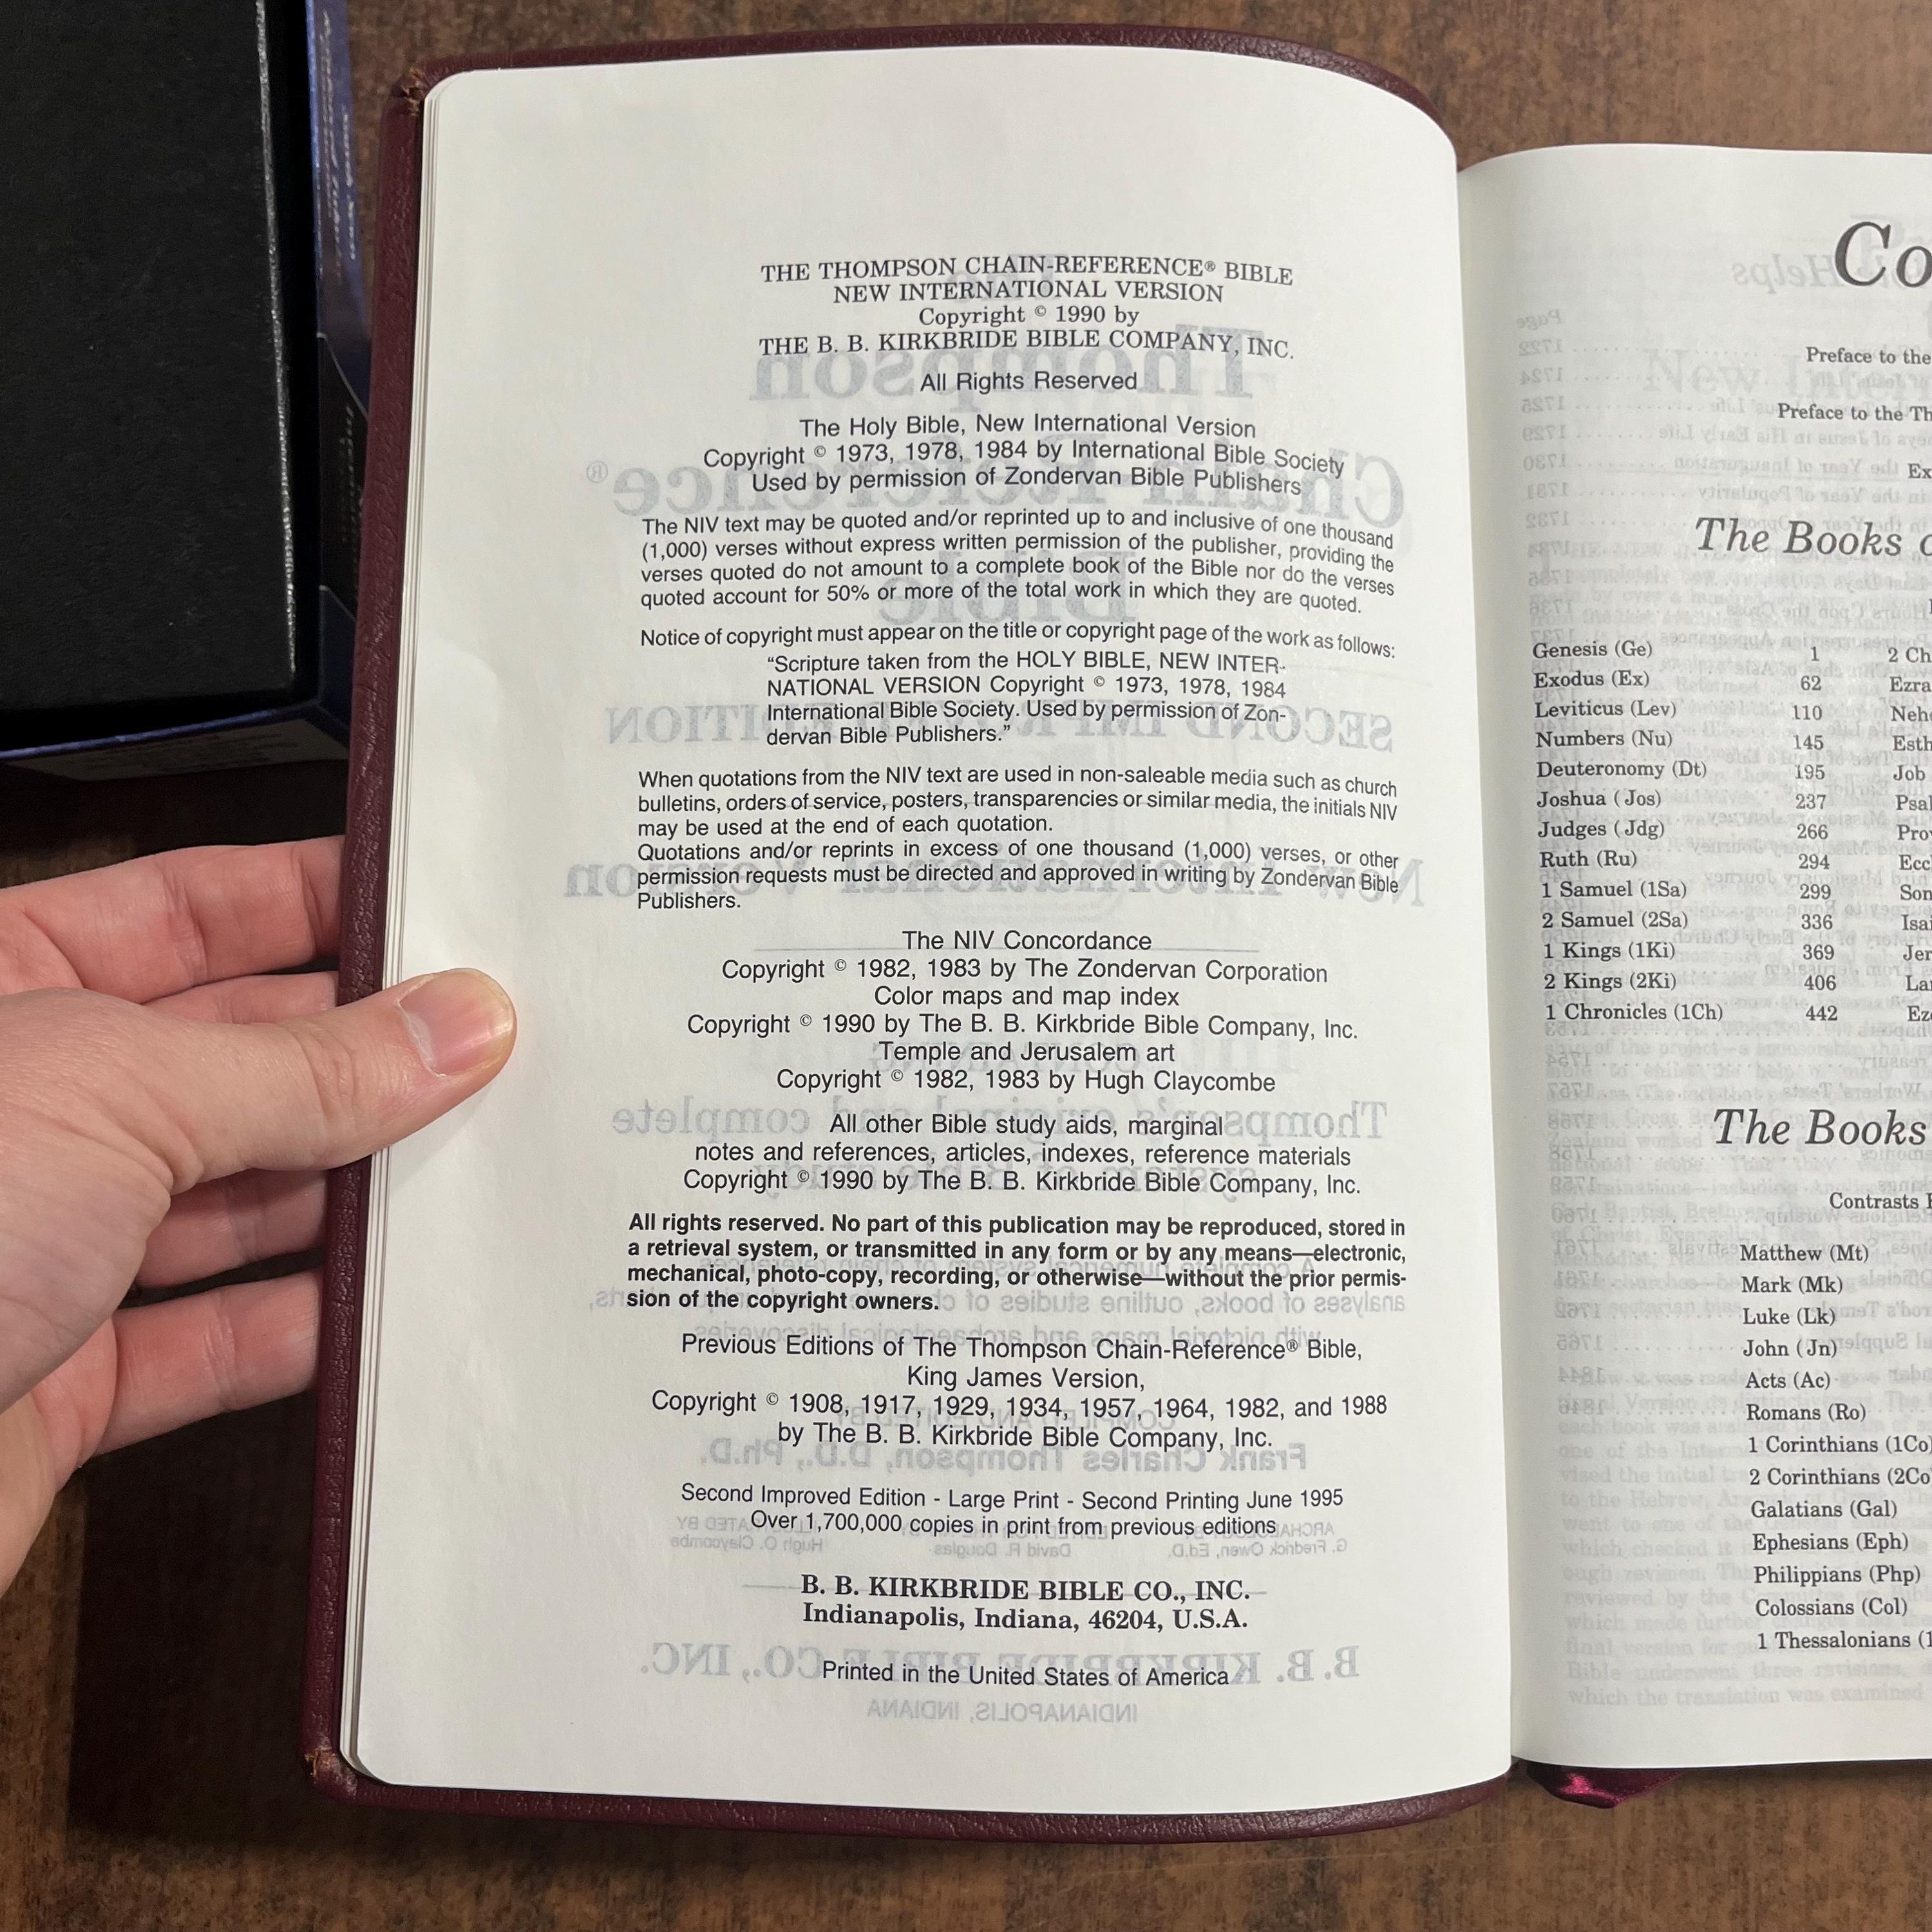 THE THOMPSON CHAIN-REFERENCE® BIBLE
NEW INTERNATIONAL VERSION
Copyright © 1990 by
THE B. B. KIRKBRIDE BIBLE COMPANY, INC.
All Rights Reserved
The Holy Bible, New International Version
Copyright © 1973, 1978, 1984 by International Bible Society
Used by permission of Zondervan Bible Publishers
The NIV text may be quoted and/or reprinted up to and inclusive of one thousand
(1,000) verses without express written permission of the publisher, providing the
verses quoted do not amount to a complete book of the Bible nor do the verses
quoted account for 50% or more of the total work in which they are quoted.
Notice of copyright must appear on the title or copyright page of the work as follows:
“Scripture taken from the HOLY BIBLE, NEW INTER-
NATIONAL VERSION Copyright © 1973, 1978, 1984
International Bible Society. Used by permission of Zon-
dervan Bible Publishers.”
When quotations from the NIV text are used in non-saleable media such as church
bulletins, orders of service, posters, transparencies or similar media, the initials NIV
may be used at the end of each quotation.
Quotations and/or reprints in excess of one thousand (1,000) verses, or other
permission requests must be directed and approved in writing by Zondervan Bible
Publishers.
The NIV Concordance
Copyright © 1982, 1983 by The Zondervan Corporation
Color maps and map index
Copyright © 1990 by The B. B. Kirkbride Bible Company, Inc.
Temple and Jerusalem art
Copyright © 1982, 1983 by Hugh Claycombe
All other Bible study aids, marginal
notes and references, articles, indexes, reference materials
Copyright © 1990 by The B. B. Kirkbride Bible Company, Inc.
All rights reserved. No part of this publication may be reproduced, stored in
a retrieval system, or transmitted in any form or by any means—electronic,
mechanical, photo-copy, recording, or otherwise—without the prior permis-
sion of the copyright owners.
Previous Editions of The Thompson Chain-Reference® Bible,
King James Version,
Copyright © 1908, 1917, 1929, 1934, 1957, 1964, 1982, and 1988
by The B. B. Kirkbride Bible Company, Inc.
Second Improved Edition - Large Print - Second Printing June 1995
Over 1,700,000 copies in print from previous editions
B. B. KIRKBRIDE BIBLE CO., INC.
Indianapolis, Indiana, 46204, U.S.A.
Printed in the United States of America
Co
Preface to the
Preface to the Th
Ex
The Books o
Genesis (Ge) 1 2 Ch
Exodus (Ex) 62 Ezra
Leviticus (Lev) 110 Neh
Numbers (Nu) 145 Esth
Deuteronomy (Dt) 195 Job
Joshua (Jos) 237 Psal
Judges (Jdg) 266 Pro
Ruth (Ru) 294 Ecc
1 Samuel (1Sa) 299 Son
2 Samuel (2Sa) 336 Isa
1 Kings (1Ki) 369 Jer
2 Kings (2Ki) 406 La
1 Chronicles (1Ch) 442 Ez
The Books
Contrasts
Matthew (Mt)
Mark (Mk)
Luke (Lk)
John (Jn)
Acts (Ac)
Romans (Ro)
1 Corinthians (1Co)
2 Corinthians (2Co
Galatians (Gal)
Ephesians (Eph)
Philippians (Php)
Colossians (Col)
1 Thessalonians (1